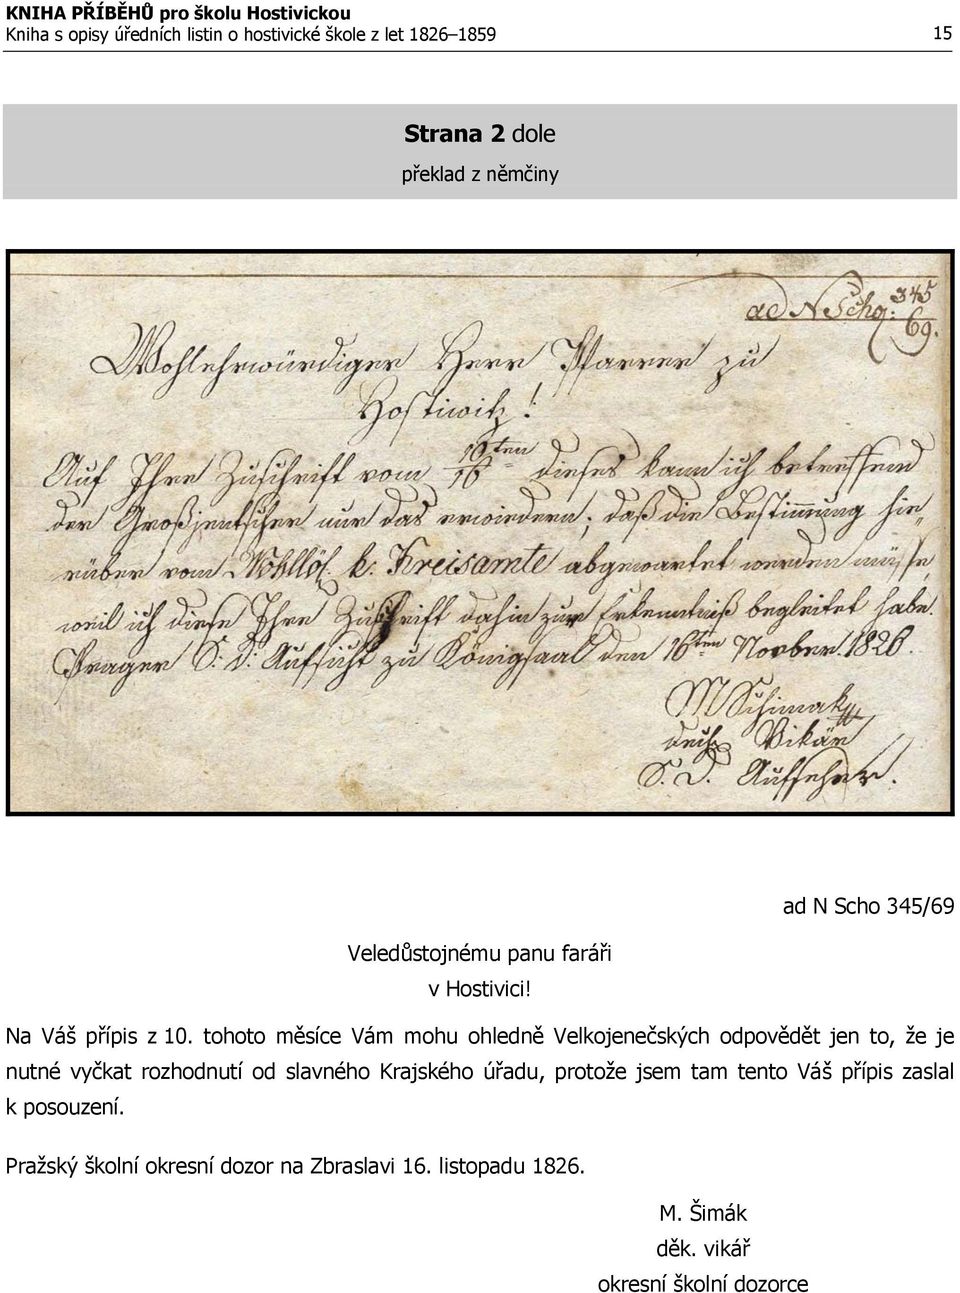 KNIHA PŘÍBĚHŮ pro školu Hostivickou
Kniha s opisy úředních listin o hostivické škole z let 1826–1859 15
Strana 2 dole
překlad z němčiny
ad N Scho: 345/69.
Wohlehrwürdiger Herr Pfarrer zu
Hostiwitz!
Auf Ihre Zuschrift vom 10ten/16 dieses kann ich betreffend
der Großjentscher nur das erwiedern; daß die Bestimmung hie„
rüber vom Wohllöf: k. Kreisamte abgewartet werden müsse,
weil ich diese Ihre Zuschrift dahin zur Erkenntniß begleitet habe.
Prager S: D: Aufsicht zu Königsaal den 16ten Novber. 1826.
M Schimak
Vikär
S. D. Aufseher.
ad N Scho 345/69
Veledůstojnému panu faráři
v Hostivici!
Na Váš přípis z 10. tohoto měsíce Vám mohu ohledně Velkojenečských odpovědět jen to, že je
nutné vyčkat rozhodnutí od slavného Krajského úřadu, protože jsem tam tento Váš přípis zaslal
k posouzení.
Pražský školní okresní dozor na Zbraslavi 16. listopadu 1826.
M. Šimák
děk. vikář
okresní školní dozorce